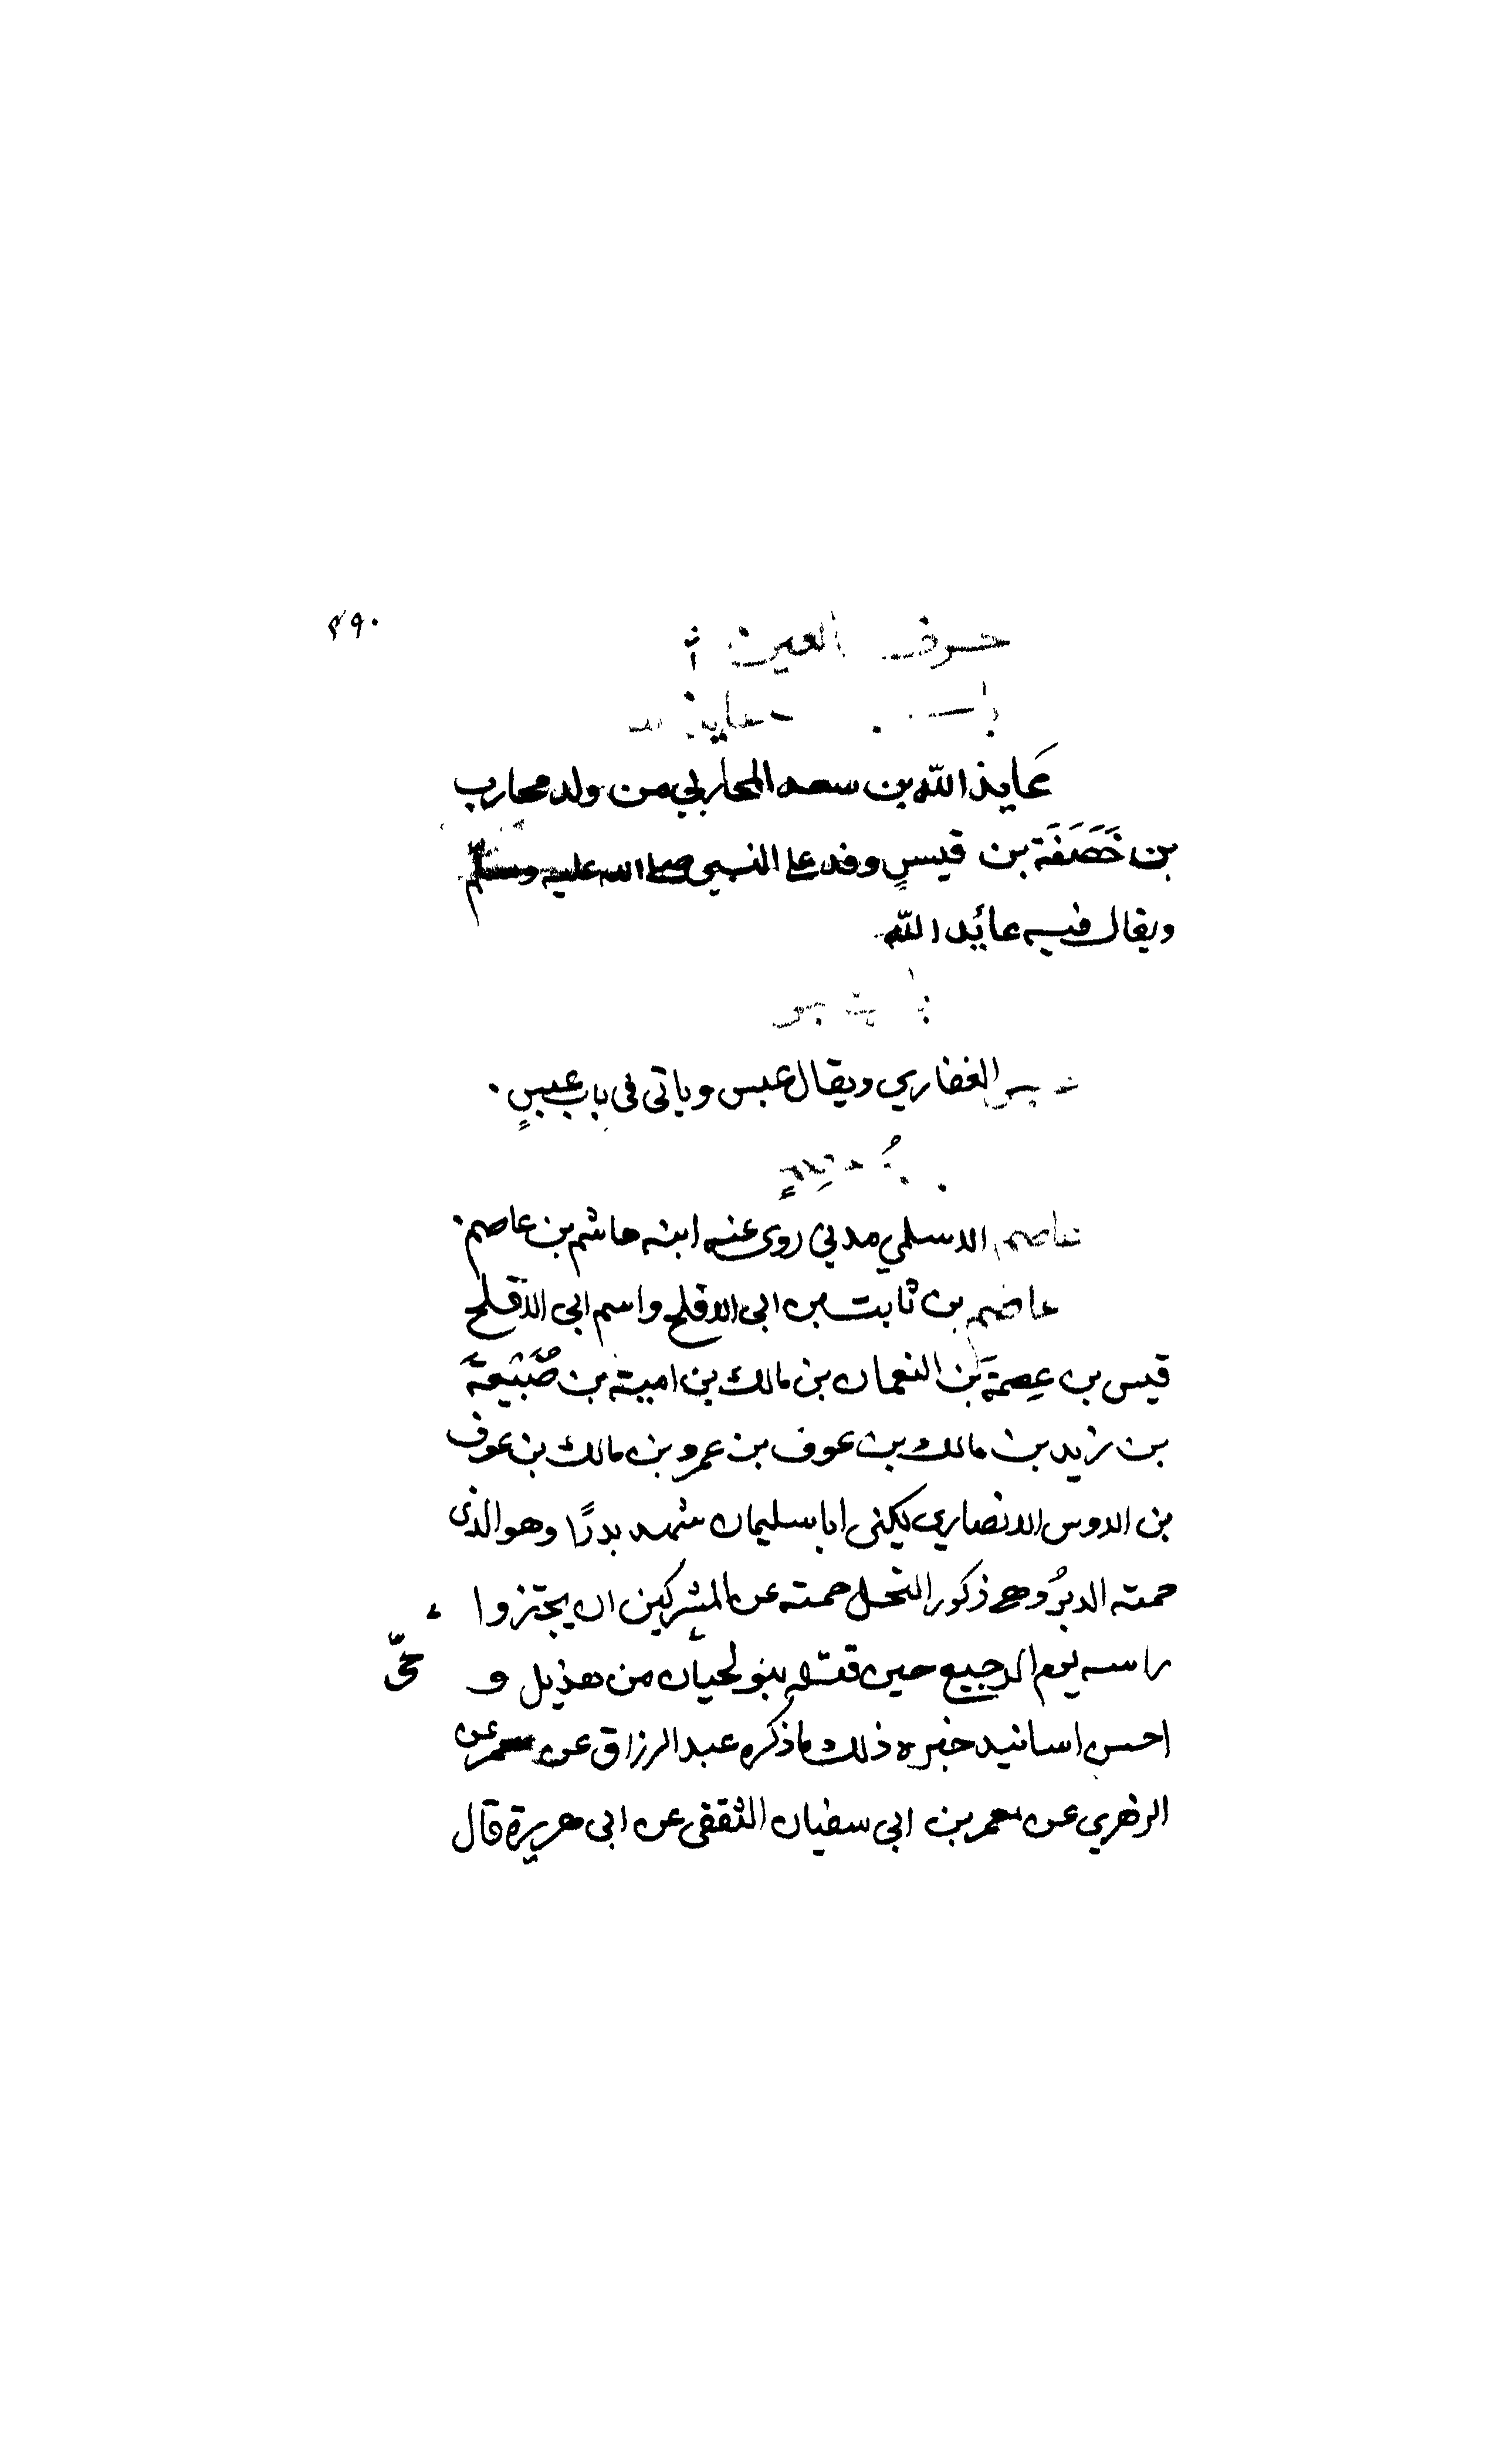 ٢٩٠
حرف العين
عايذ الله بن سعد المحاربي من ولد محارب
بن خَصَفَة بن قيسٍ وفد على النبي صلى الله عليه وسلّم
ويقال فيه عائد الله
الغفاري ويقال عبس وياتى فى باب عبسٍ
عاصم الاسلمي مدني روى عنه ابنه هاشم بن عاصم
عاصم بن ثابت بن ابى الاقلح واسم ابى الاقلح
قيس بن عِصمَة بن النعمان بن مالك بن امية بن ضُبَيعَة
بن زيد بن مالك بن عوف بن عمرو بن مالك بن عوف
بن الاوس الانصاري يكنى ابا سليمان شهد بدرًا وهو الذى
حمته الدبرُ وهى ذكور النحل حمته عن المشركين ان يجتزوا
راسه يوم الرجيع حين قتله بنو لحيان من هذيل و
احسن اسانيد خبره ذلك ما ذكره عبد الرزاق عن معمر عن
الزهري عن عمر بن ابي سفيان الثقفى عن ابى هريرة قال